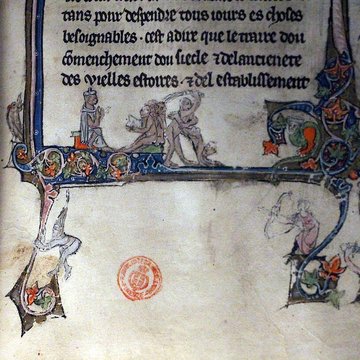 tans pour despendre tous iours es choses
besoignables. cest adire que le traire dou
comenchement dou siecle & delancienete
des vielles estoires. & del establissement